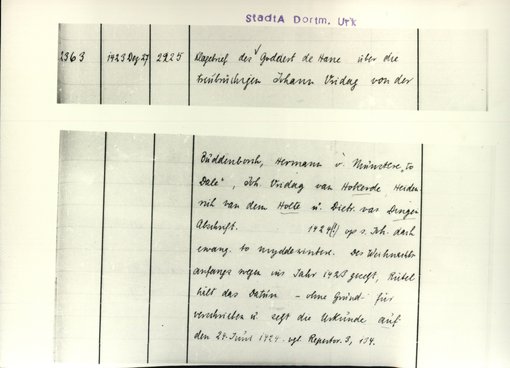 StadtA Dortm. Urk
2363 1423 Dez 27 2925 Klagebrief des Goddert de Hane über die
treubrüchigen Johann Vridag von der
Büddenborch, Hermann v. Münster „to
Dale", Joh. Vridag van Hokerde Heiden-
rich van dem Holte u. Dietr. van Dingen
Abschrift. 1424(!) op s. Joh. dach
ewang. to myddewintere. Des Weihnachts-
anfangs wegen ins Jahr 1423 gesetzt, Rübel
hält das Datum – ohne Grund – für
verschrieben u. setzt die Urkunde auf
den 24. Juni 1424. vgl. Repertor. 3, 134.